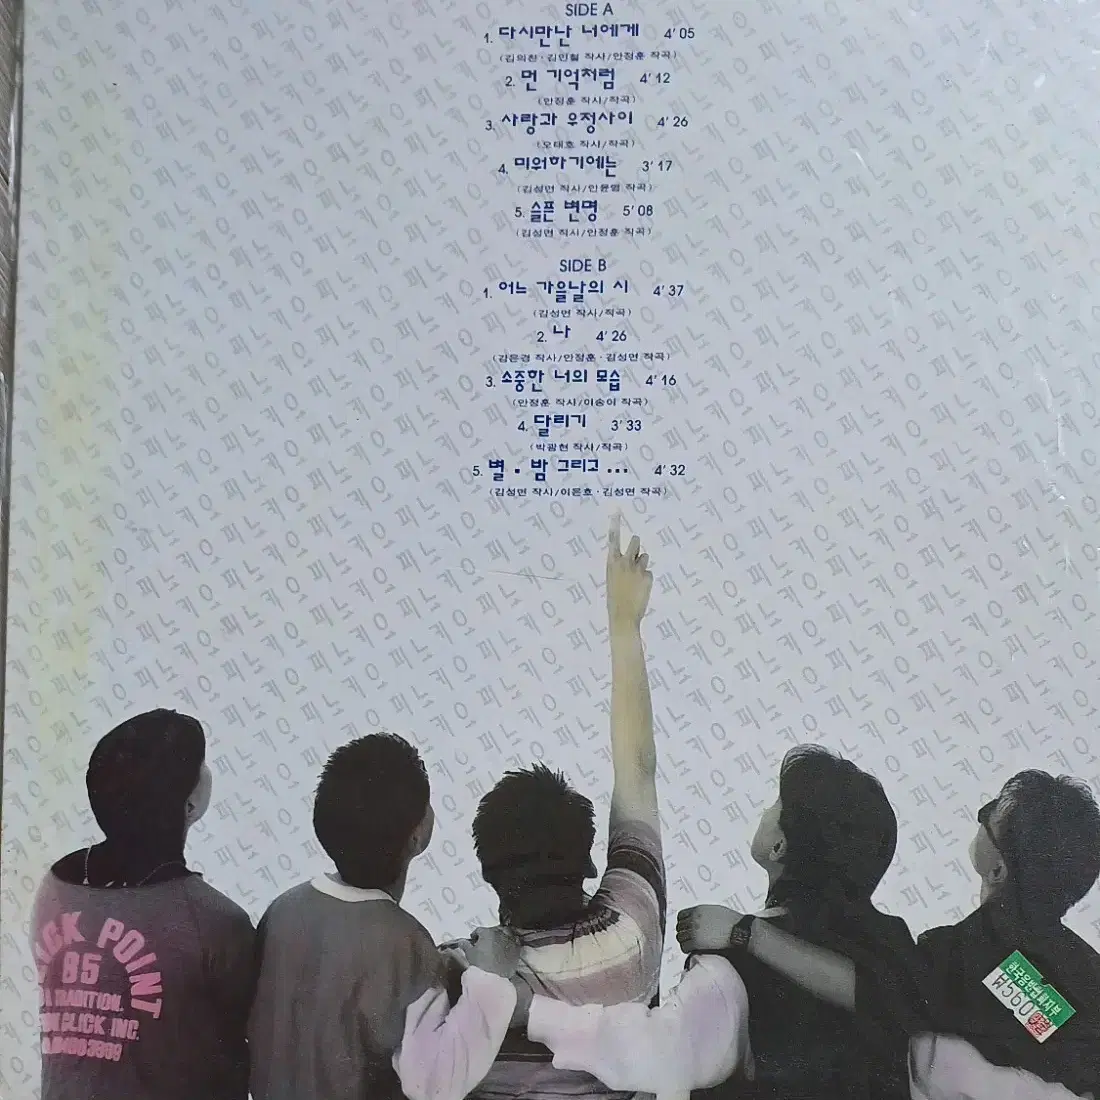 SIDE A
1. 다시만난 너에게 4' 05
(김의진·김민철 작사/안정훈 작곡)
2. 먼 기억처럼 4' 12
(안정훈 작사/작곡)
3. 사랑과 우정사이 4' 26
(오태호 작사/작곡)
4. 미워하기에는 3' 17
(김성면 작사/안윤영 작곡)
5. 슬픈 변명 5' 08
(김성면 작사/안정훈 작곡)
SIDE B
1. 어느 가을날의 시 4' 37
(김성면 작사/작곡)
2. 나 4' 26
(김은경 작사/안정훈·김성면 작곡)
3. 소중한 너의 모습 4' 16
(안정훈 작사/이승어 작곡)
4. 달리기 3' 33
(박광현 작사/작곡)
5. 별 . 밤 그리고 ... 4' 32
(김성면 작사/이은호·김성면 작곡)
피노키오
POINT
85
TRADITION.
CLICK INC.
한국음반협회지부
₩560